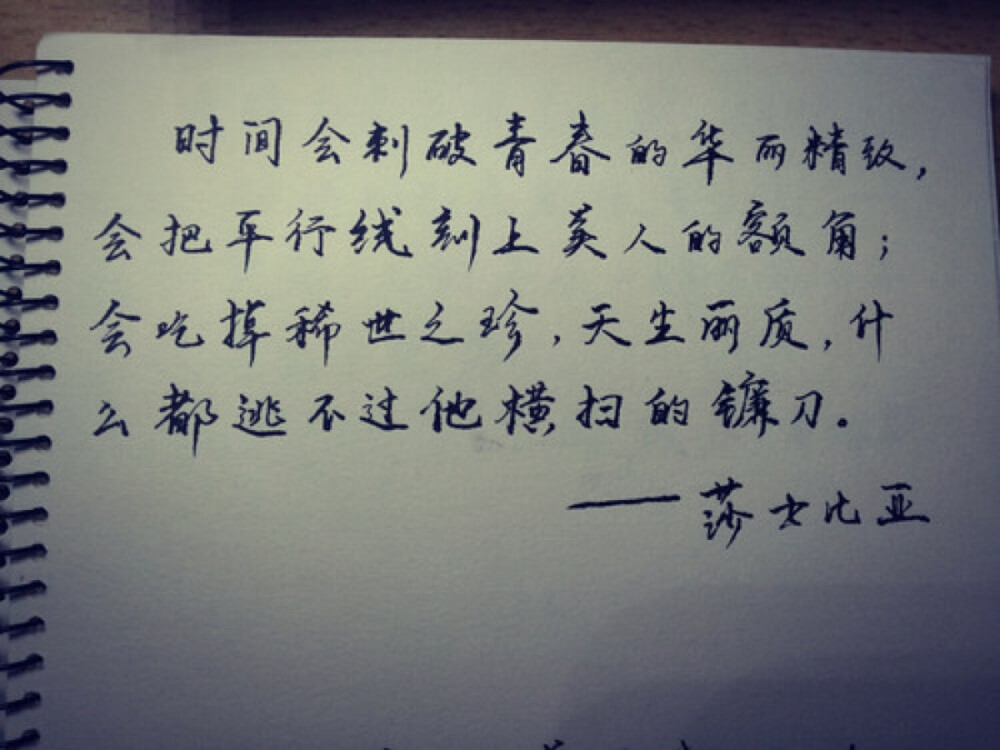 时间会刺破青春的华而精致，
会把平行线刻上美人的额角；
会吃掉稀世之珍，天生丽质，什
么都逃不过他横扫的镰刀。
——莎士比亚